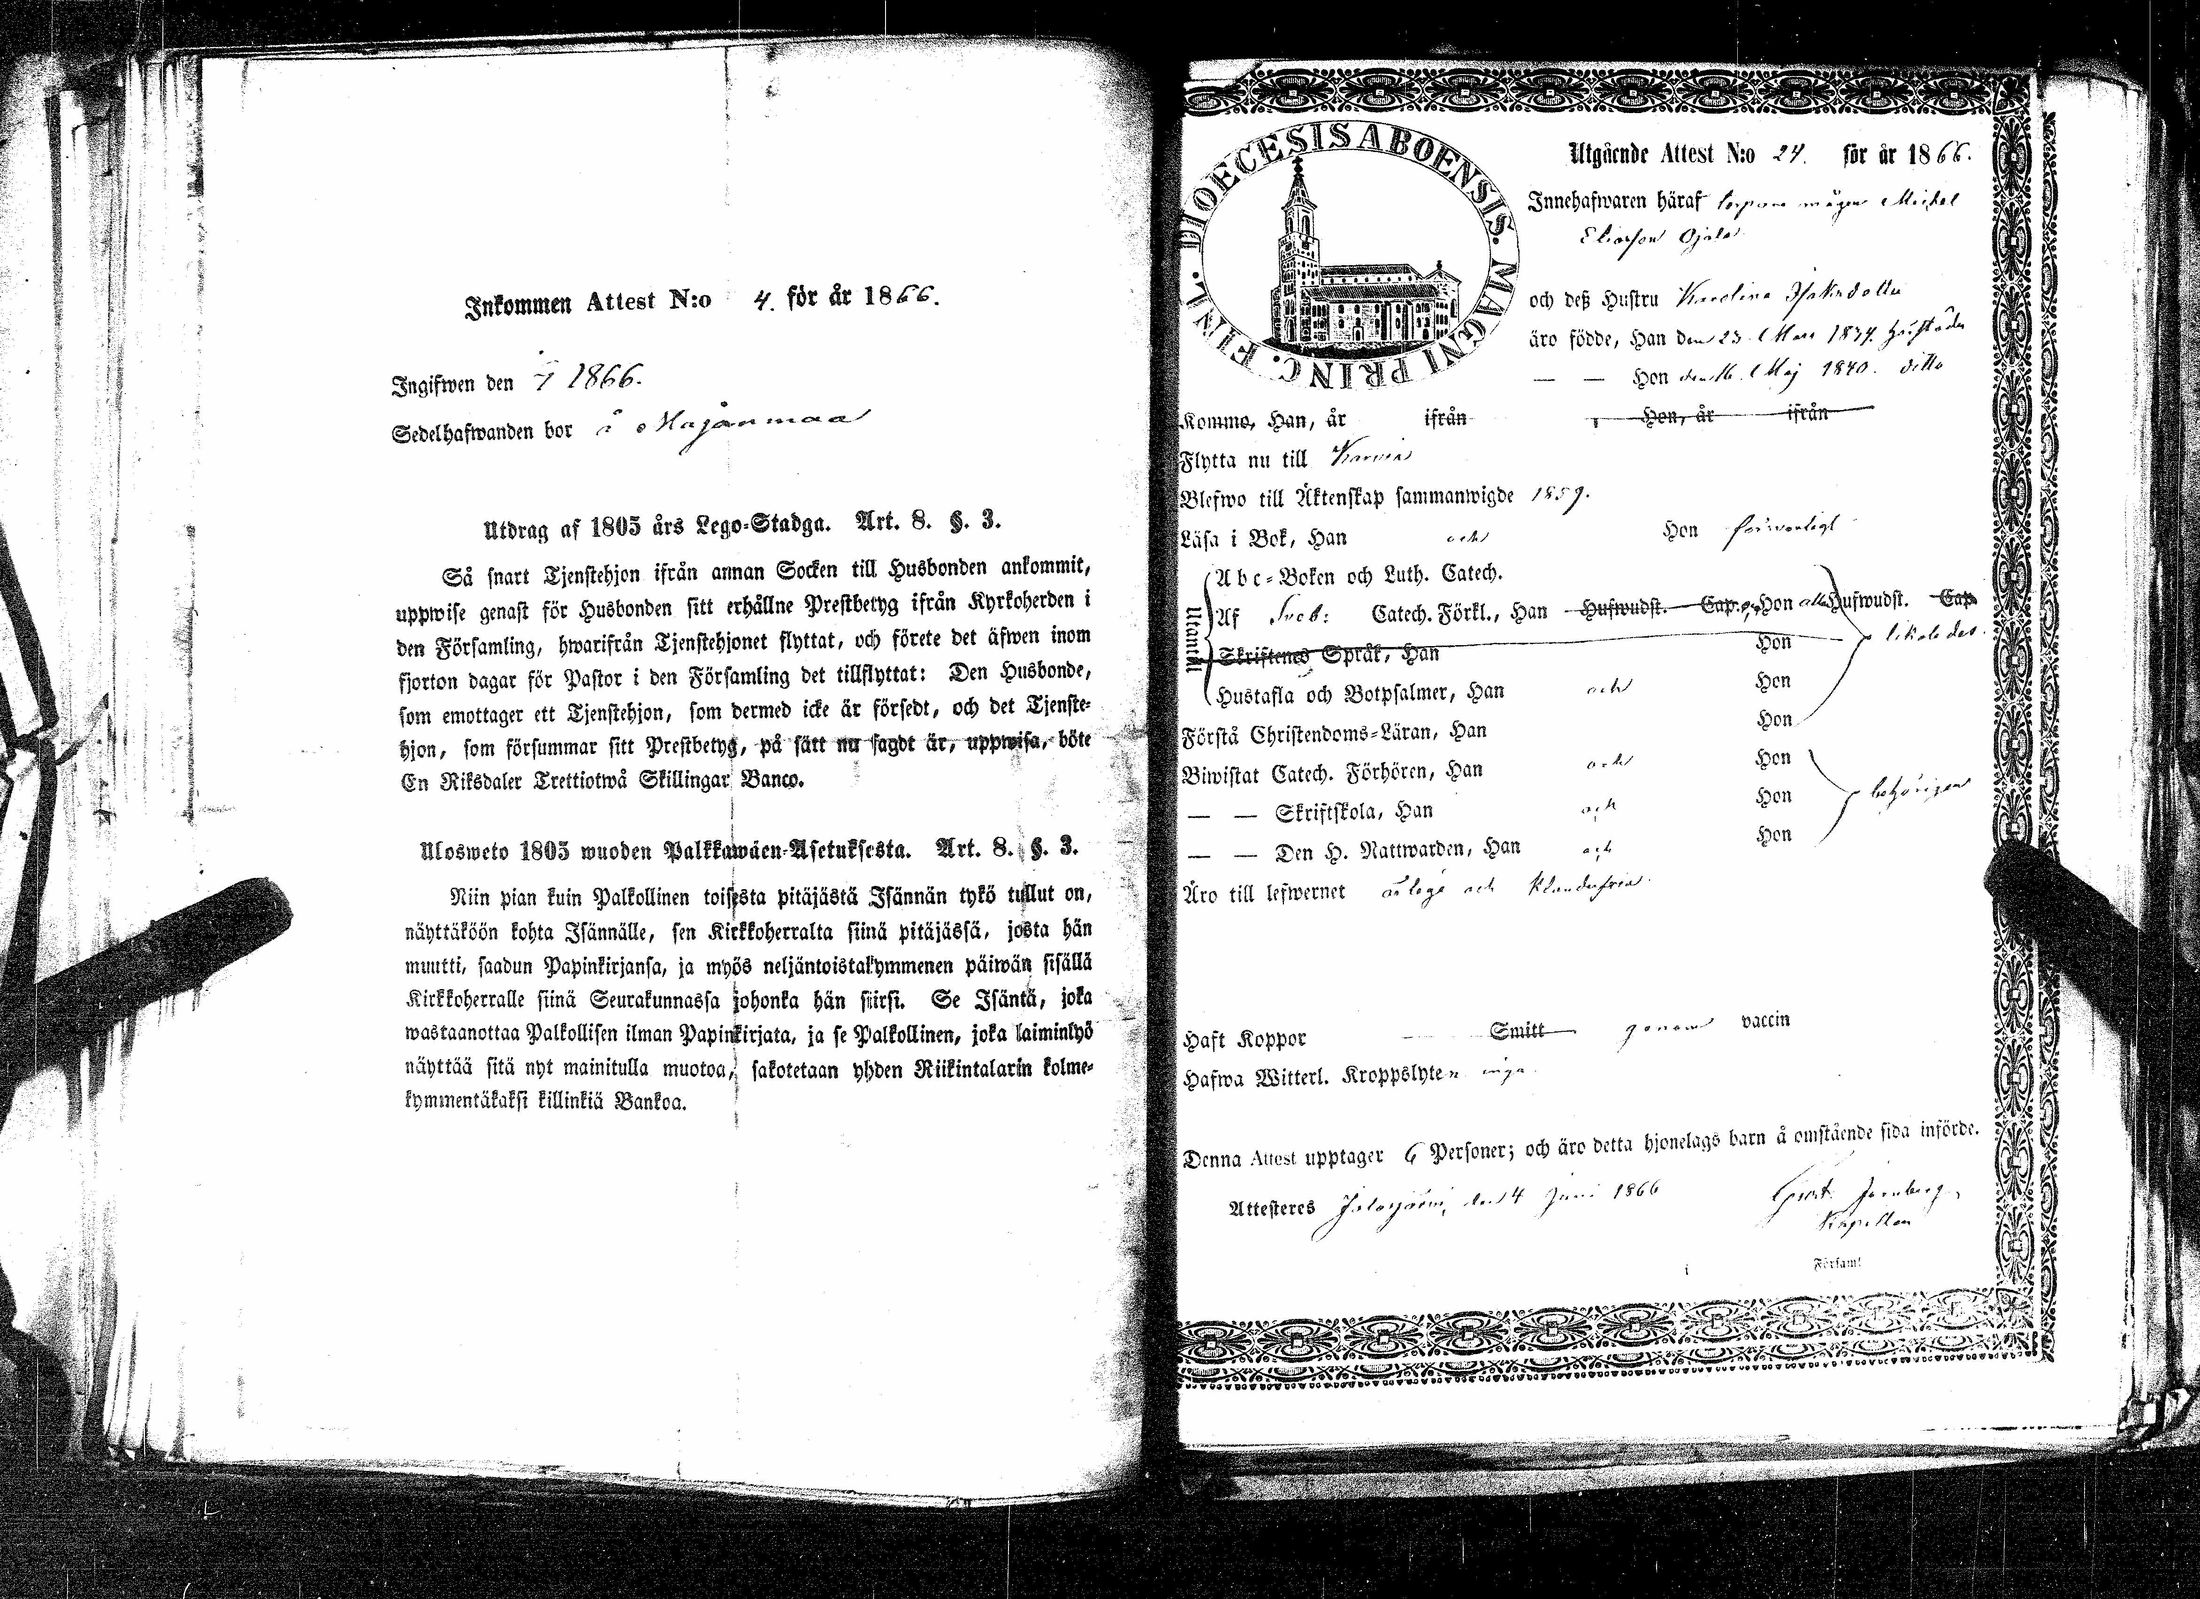 Inkommen Attest N:o 4. för år 1866.
Ingifwen den 7/7 1866.
Sedelhafwanden bor å Majanmaa
Utdrag af 1805 års Lego-Stadga. Art. 8. §. 3.
Så snart Tjenstehjon ifrån annan Socken till Husbonden ankommit,
uppwise genast för Husbonden sitt erhållne Prestbetyg ifrån Kyrkoherden i
den Församling, hwarifrån Tjenstehjonet flyttat, och förete det äfwen inom
fjorton dagar för Pastor i den Församling det tillflyttat: Den Husbonde,
som emottager ett Tjenstehjon, som dermed icke är försedt, och det Tjenste-
hjon, som försummar sitt Prestbetyg, på sätt nu sagdt är, uppwisa, böte
En Riksdaler Trettiotwå Skillingar Banco.
Ulosweto 1805 wuoden Palkkawäen-Asetuksesta. Art. 8. §. 3.
Niin pian kuin Palkollinen toisesta pitäjästä Isännän tykö tullut on,
näyttäköön kohta Isännälle, sen Kirkkoherralta siinä pitäjässä, josta hän
muutti, saadun Papinkirjansa, ja myös neljäntoistakymmenen päiwän sisällä
Kirkkoherralle siinä Seurakunnassa johonka hän siirsi. Se Isäntä, joka
wastaanottaa Palkollisen ilman Papinkirjata, ja se Palkollinen, joka laiminlyö
näyttää sitä nyt mainitulla muotoa, sakotetaan yhden Riikintalarin kolme-
kymmentäkaksi killinkiä Bankoa.
DIOECESIS ABOENSIS. MAGNI PRINC. FINL.
Utgående Attest N:o 24. för år 1866.
Innehafwaren häraf mågen Mickel
Eliasson Ojala
och deß Hustru Karolina Isaksdotter
äro födde, Han den 23 Mars 1834.
— — Hon den 16. Maj 1840. ditto
Komme, Han, år ifrån , Hon, år ifrån
Flytta nu till Karvia
Blefwo till Äktenskap sammanwigde 1859.
Läsa i Bok, Han och Hon försvarligt
Utantill
Abc-Boken och Luth. Catech.
Af Sveb: Catech. Förkl., Han Hufwudst. Cap. Hon Hufwudst. Cap.
likaledes.
Skriftenes Språk, Han Hon
Hustafla och Botpsalmer, Han och Hon
Förstå Christendoms-Läran, Han Hon
Biwistat Catech. Förhören, Han och Hon
behörigen
— — Skriftskola, Han och Hon
— — Den H. Nattwarden, Han och Hon
Äro till lefwernet ärlige och klanderfria.
Haft Koppor Smitt genom vaccin
Hafwa Witterl. Kroppslyten inga.
Denna Attest upptager 6 Personer; och äro detta hjonelags barn å omstående sida införde.
Attesteres Jalasjärvi, den 4 Juni 1866
Kapellan
i Församl